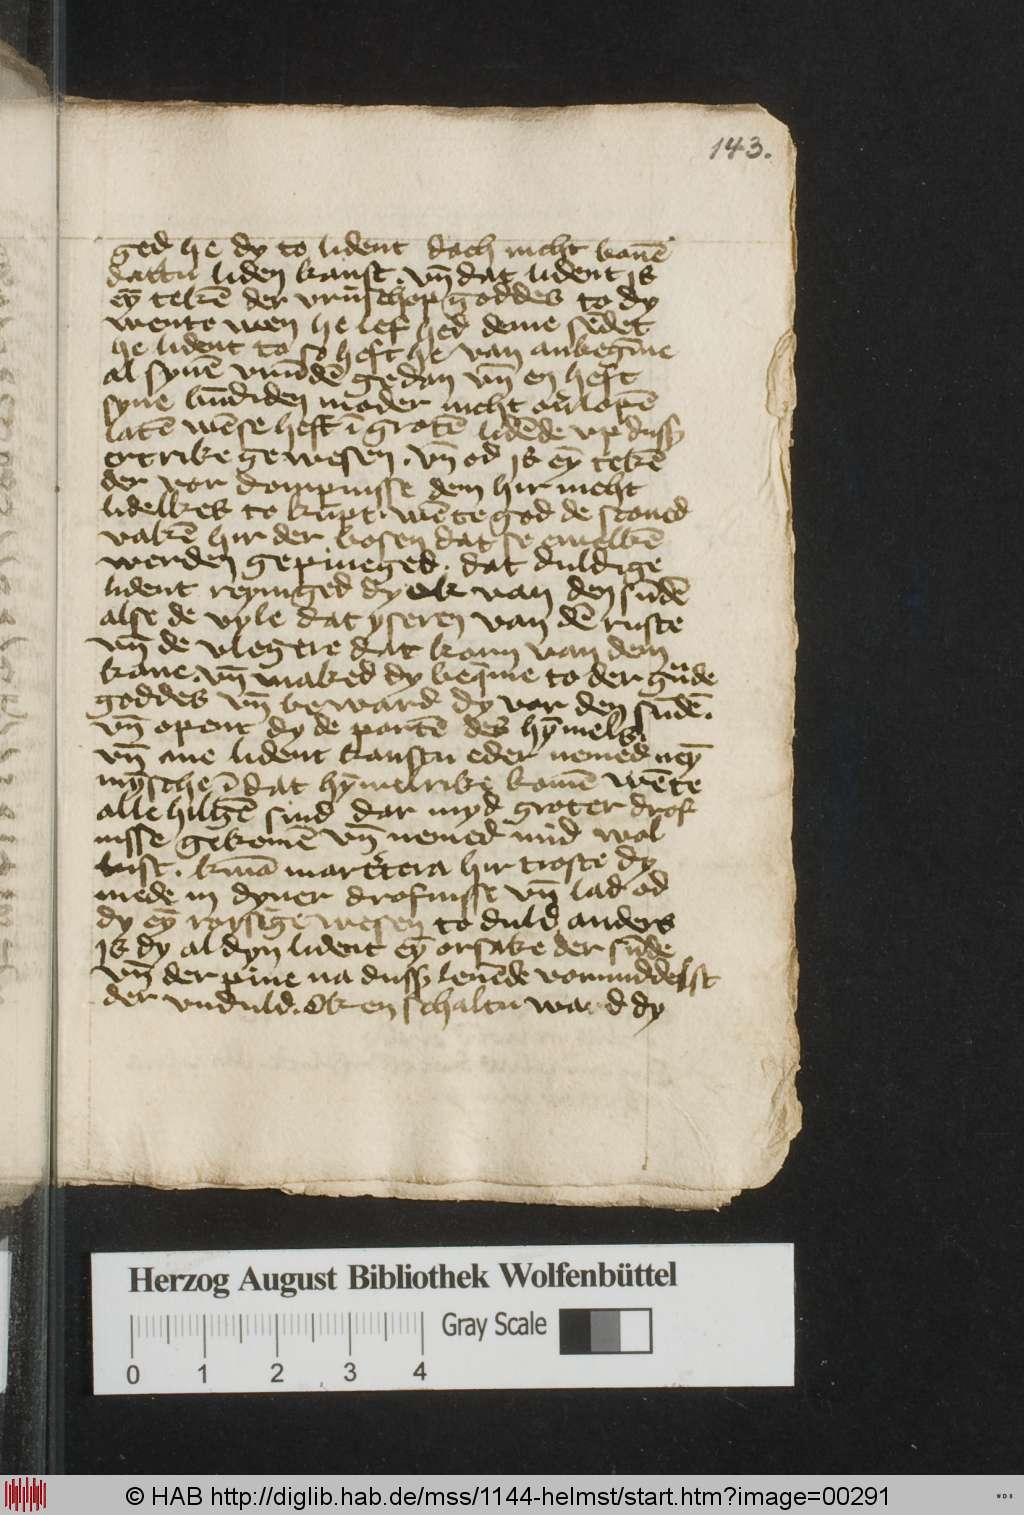 143.
ged he dy to lident doch nicht bouē
dattu liden kanst. vn̄ dat lident is
eȳ tekē der vrūschop goddes to dy
wente wen he lef hed deme sēdet
he lident to so heft he van anbegīne
al synē vrūdē gedan vn̄ en heft
syne moder nicht
latē wēse heft ī grotē lidēde vp duss
ertrike gewesen. vn̄ od is eȳ tekē
der vor dompnisse dem hir nicht
lidelkes to kūpt. wēte god de scōned
vakē hir der bosen dat se ewelkē
werden gepineged. dat duldige
lident reyniged dy ok van den sūdē
alse de vyle dat yseren van dē ruste
vn̄ de vlegere dat korn van dem
kaue. vn̄ maked dy beq̄me to der gnade
goddes vn̄ beward dy vor den sūdē.
vn̄ opent dy de portē des hȳmels.
vn̄ ane lident kanstu eder nemed neȳ
mȳsche ī dat hȳmelrike komē wēte
alle hilgē sind dar myd groter drof
nisse gekomē vn̄ nemed mid wol
lust. hir troste dy
mede in dyner drofnisse vn̄ lad od
dy eȳ wesen to duld anders
is dy al dyn lident eȳ orsake der sūde
vn̄ der pine na duss leuēde vormiddelst
der vnduld. Ok en schaltu ward dy
Herzog August Bibliothek Wolfenbüttel
Gray Scale
0 1 2 3 4
© HAB http://diglib.hab.de/mss/1144-helmst/start.htm?image=00291